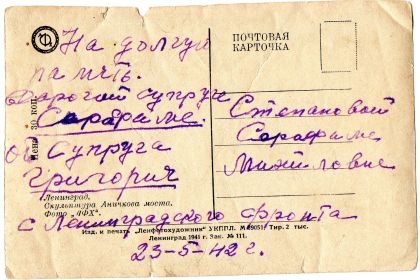 ПОЧТОВАЯ
КАРТОЧКА
На долгую
память.
Дорогой супруге
Серафиме.
от Супруга
Григорич
с Ленинградского фронта
23-5-42 г.
Степановой
Серафиме
Михиловне
Цена 30 коп.
Ленинград.
Скульптура Аничкова моста.
Фото „ЛФХ“.
Изд. и печать „Ленфотохудожник“ УКППЛ. М 29051 Тир. 2 тыс.
Ленинград 1941 г. Зак. № 111.